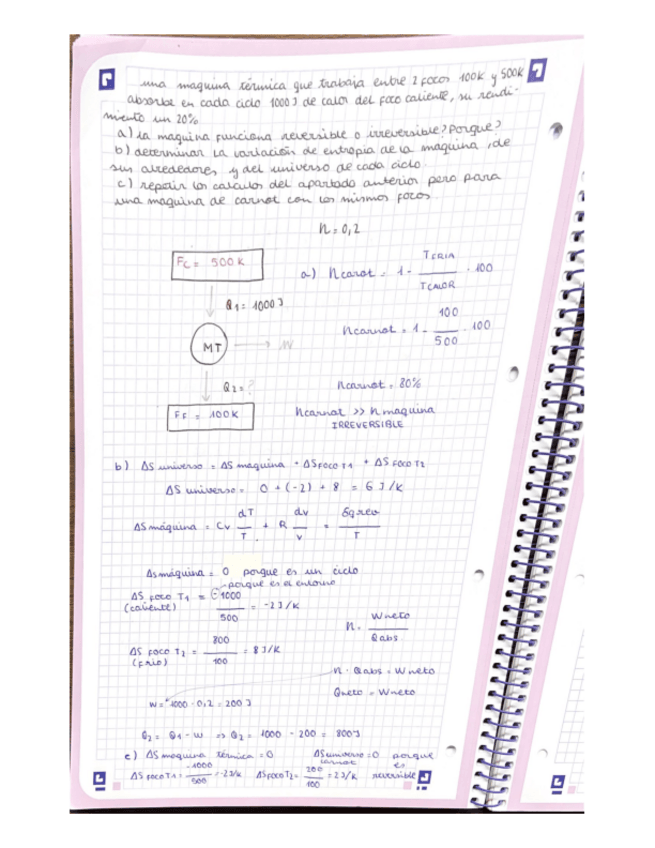 una maquina térmica que trabaja entre 2 focos 100K y 500K
absorbe en cada ciclo 1000 J de calor del foco caliente, su rendi-
miento un 20%
a) la maquina funciona reversible o irreversible? Porque?
b) determinar la variación de entropia de la maquina, de
sus alrededores y del universo de cada ciclo.
c) repetir los calculos del apartado anterior pero para
una maquina de carnot con los mismos focos
n = 0,2
Fc = 500 K
Q1 = 1000 J
MT
W
Q2 = ?
FF = 100K
a) ncarot = 1 - TFRIA / TCALOR · 100
ncarnot = 1 - 100 / 500 · 100
ncarnot = 80%
ncarnot >> n maquina
IRREVERSIBLE
b) ΔS universo = ΔS maquina + ΔS foco T1 + ΔS foco T2
ΔS universo = 0 + (-2) + 8 = 6 J/K
ΔS máquina = Cv dT / T + R dv / v = δq rev / T
ΔS máquina = 0 porque es un ciclo
porque es el entorno
ΔS foco T1 = -1000 / 500 = -2 J/K
(caliente)
ΔS foco T2 = 800 / 100 = 8 J/K
(frio)
n = Wneto / Qabs
n · Qabs = Wneto
Qneto = Wneto
W = 1000 · 0,2 = 200 J
Q2 = Q1 - W => Q2 = 1000 - 200 = 800 J
c) ΔS maquina térmica = 0
ΔS universo carnot = 0 porque es reversible
ΔS foco T1 = -1000 / 500 = -2 J/K
ΔS foco T2 = 200 / 100 = 2 J/K